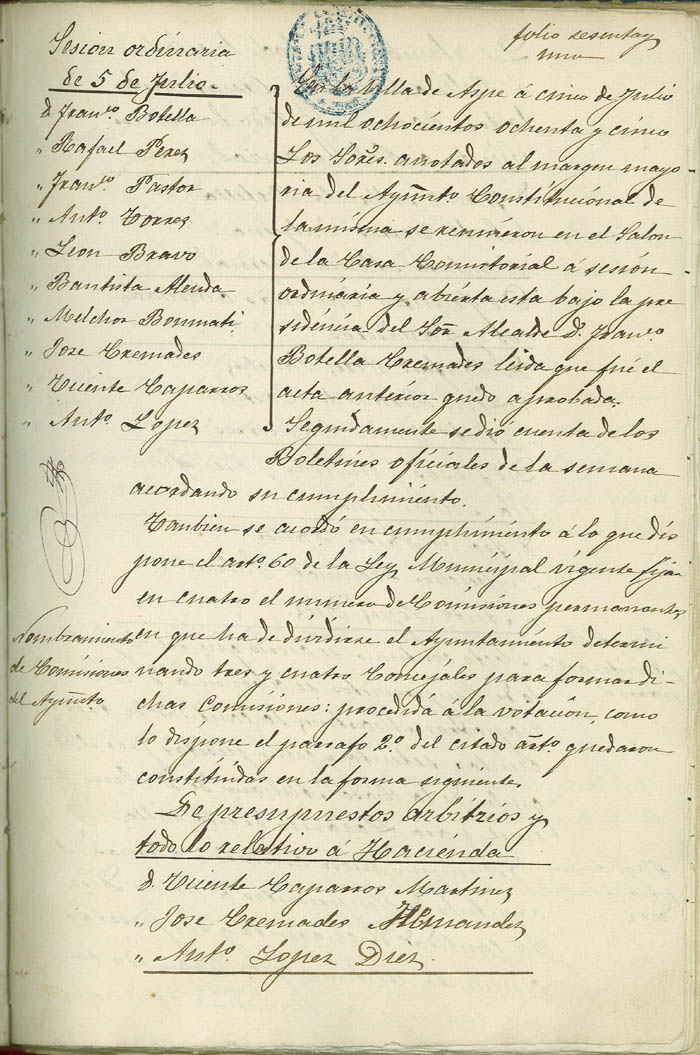 folio sesentay
uno
Sesion ordinaria
de 5 de Julio.
D. Franco. Botella
" Rafael Perez
" Franco. Pastor
" Anto. Torres
" Leon Bravo
" Bautista Alenda
" Melchor Bonmati
" Jose Cremades
" Vicente Caparros
" Anto. Lopez
En la villa de Aspe á cinco de Julio
de mil ochocientos ochenta y cinco
Los Sores. anotados al margen mayo-
ria del Ayunto. Constitucional de
la misma se reunieron en el Salon
de la Casa Consistorial á sesión
ordinaria y abierta esta bajo la pre
sidencia del Sor. Alcalde D. Franco.
Botella Cremades leida que fué el
acta anterior quedo aprobada.
Seguidamente se dió cuenta de los
Boletines oficiales de la semana
acordando su cumplimiento.
Tambien se acordó en cumplimiento á lo que dis
pone el arto. 60 de la Ley Municipal vigente fijar
en cuatro el numero de Comisiones permanentes
en que ha de dividirse el Ayuntamiento determi
nando tres y cuatro Concejales para formar di-
chas Comisiones: procedida á la votación, como
lo dispone el parrafo 2.º del citado arto. quedaron
constituidas en la forma siguiente.
Nombramiento
de Comisiones
del Ayunto
De presupuestos arbitrios y
todo lo relativo á Hacienda
D. Vicente Caparros Martinez
" Jose Cremades Hernandez
" Anto. Lopez Diez.